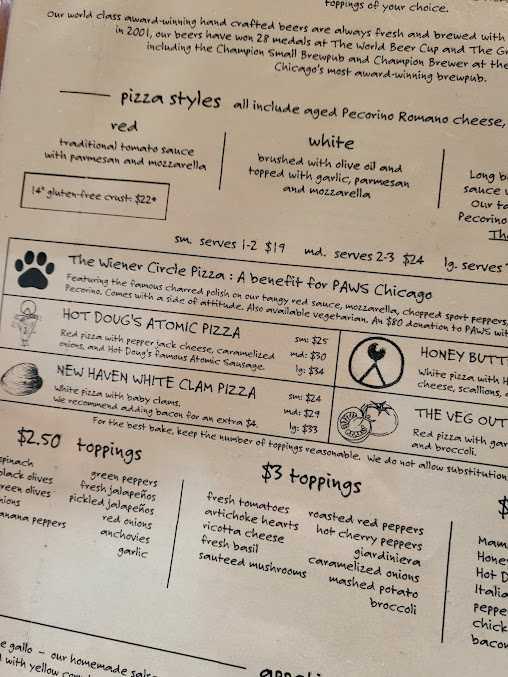 toppings of your choice.
Our world class award-winning hand crafted beers are always fresh and brewed with
in 2001, our beers have won 28 medals at The World Beer Cup and The Gr
including the Champion Small Brewpub and Champion Brewer at the
Chicago's most award-winning brewpub.
pizza styles all include aged Pecorino Romano cheese,
red
traditional tomato sauce
with parmesan and mozzarella
white
brushed with olive oil and
topped with garlic, parmesan
and mozzarella
Long b
sauce
Our to
Pecorino
Th
14" gluten-free crust: $22*
sm. serves 1-2 $19 md. serves 2-3 $24 lg. serves
The Wiener Circle Pizza : A benefit for PAWS Chicago
Featuring the famous charred polish on our tangy red sauce, mozzarella, chopped sport peppers,
Pecorino. Comes with a side of attitude. Also available vegetarian. An $80 donation to PAWS wit
HOT DOUG'S ATOMIC PIZZA
Red pizza with pepper jack cheese, caramelized
onions, and Hot Doug's famous Atomic Sausage.
sm: $25
md: $30
lg: $34
HONEY BUTT
White pizza with H
cheese, scallions,
NEW HAVEN WHITE CLAM PIZZA
White pizza with baby clams.
We recommend adding bacon for an extra $4.
sm: $24
md: $29
lg: $33
THE VEG OUT
Red pizza with gar
and broccoli.
For the best bake, keep the number of toppings reasonable. We do not allow substitution
$2.50 toppings
spinach
black olives
green olives
onions
banana peppers
green peppers
fresh jalapeños
pickled jalapeños
red onions
anchovies
garlic
$3 toppings
fresh tomatoes
artichoke hearts
ricotta cheese
fresh basil
sauteed mushrooms
roasted red peppers
hot cherry peppers
giardiniera
caramelized onions
mashed potato
broccoli
$
Mam
Hone
Hot D
Italia
peppe
chick
bacon
e gallo – our homemade salsa
d with yellow cor
appeti